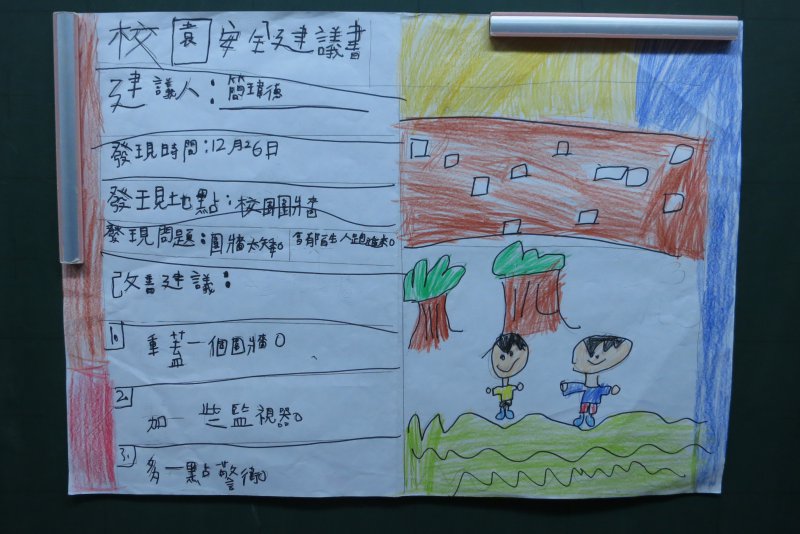 校園安全建議書
建議人：簡瑋德
發現時間：12月26日
發現地點：校園圍牆
發現問題：圍牆太矮。 會有陌生人跑進來。
改善建議：
1. 重蓋一個圍牆。
2. 加一些監視器。
3. 多一點警衛。